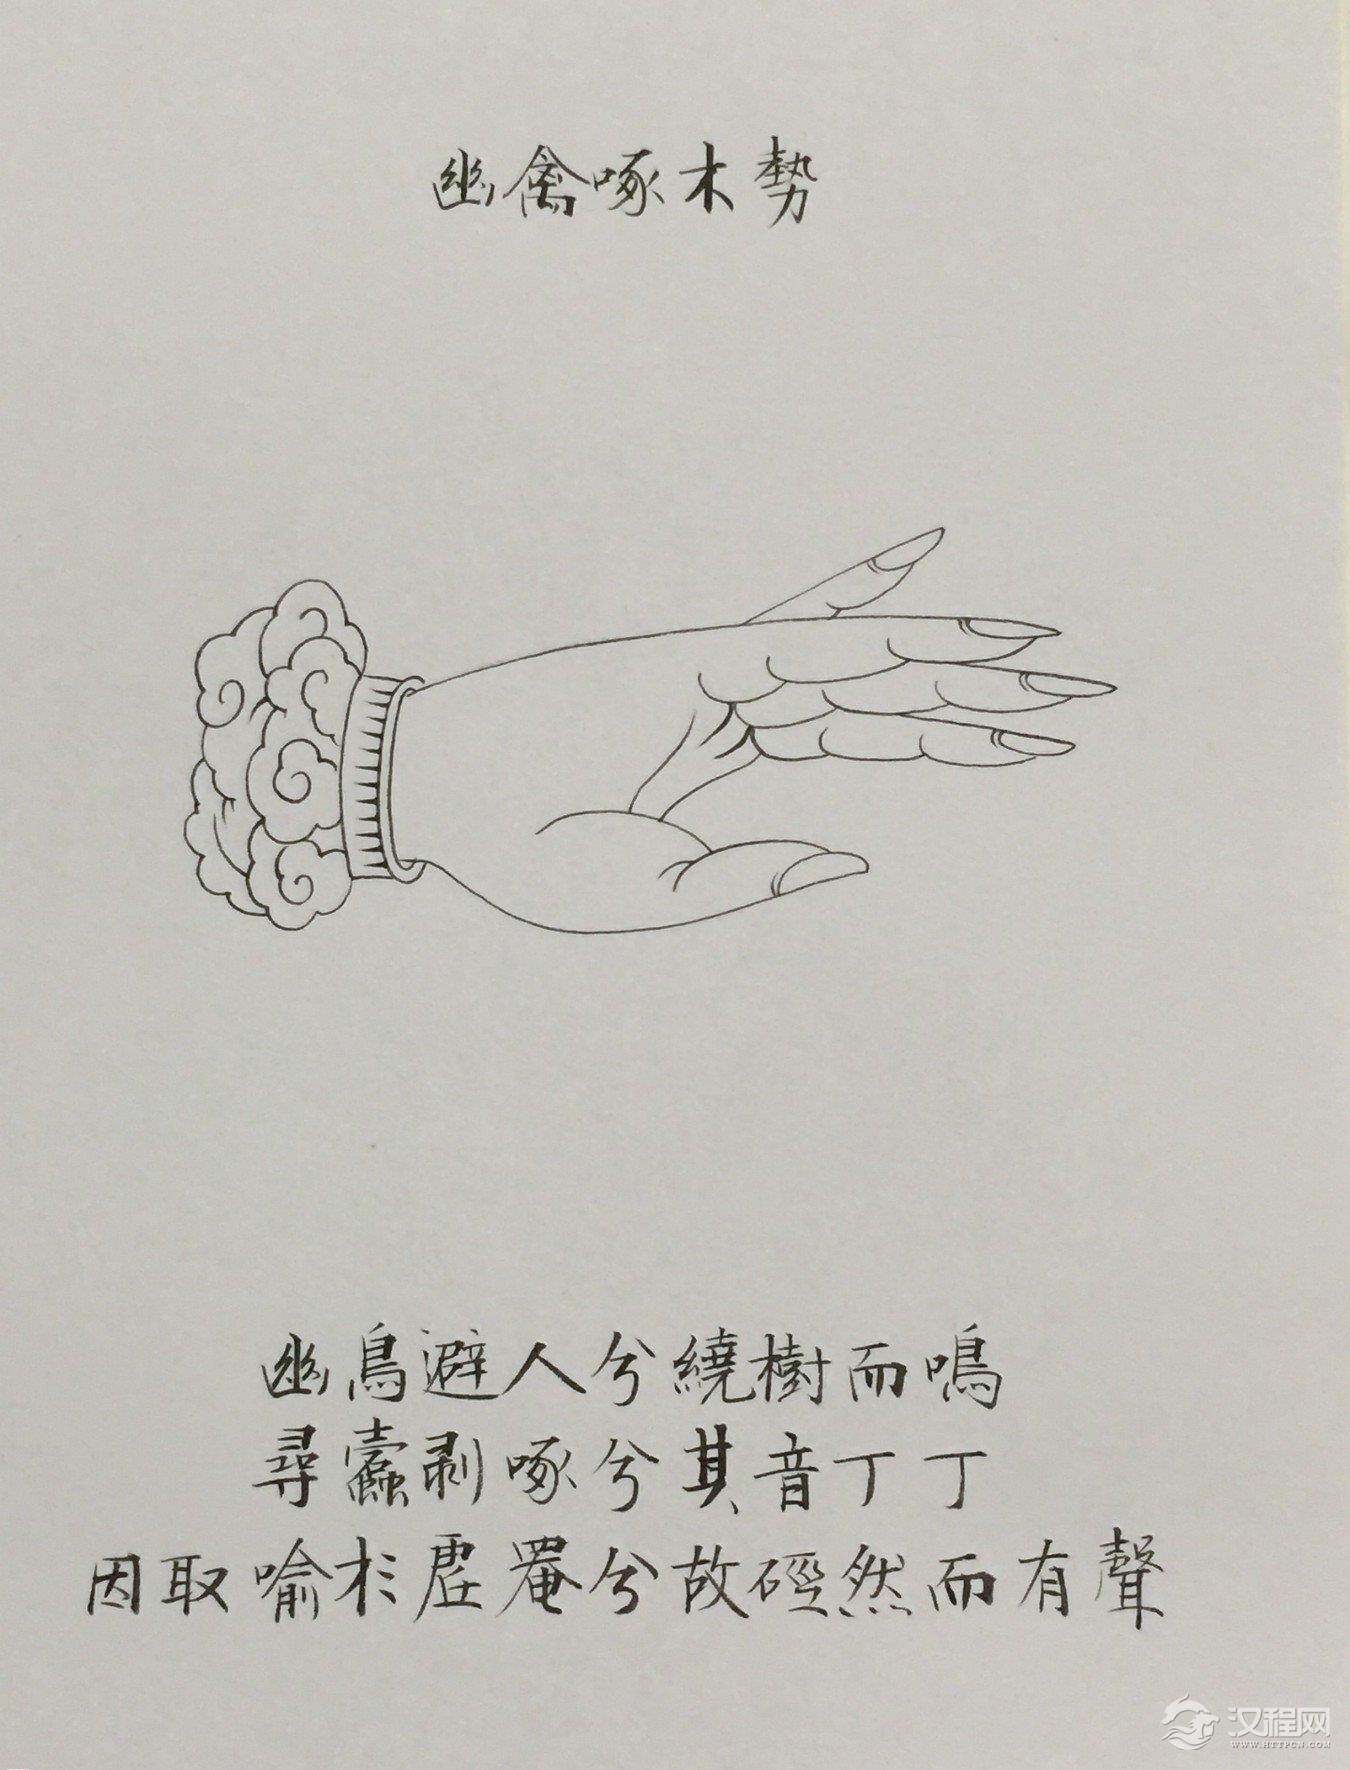 幽禽啄木勢
幽鳥避人兮繞樹而鳴
尋蠹剥啄兮其音丁丁
因取喻於虛罨兮故硜然而有聲
汉程网
WWW.HTTPCN.COM